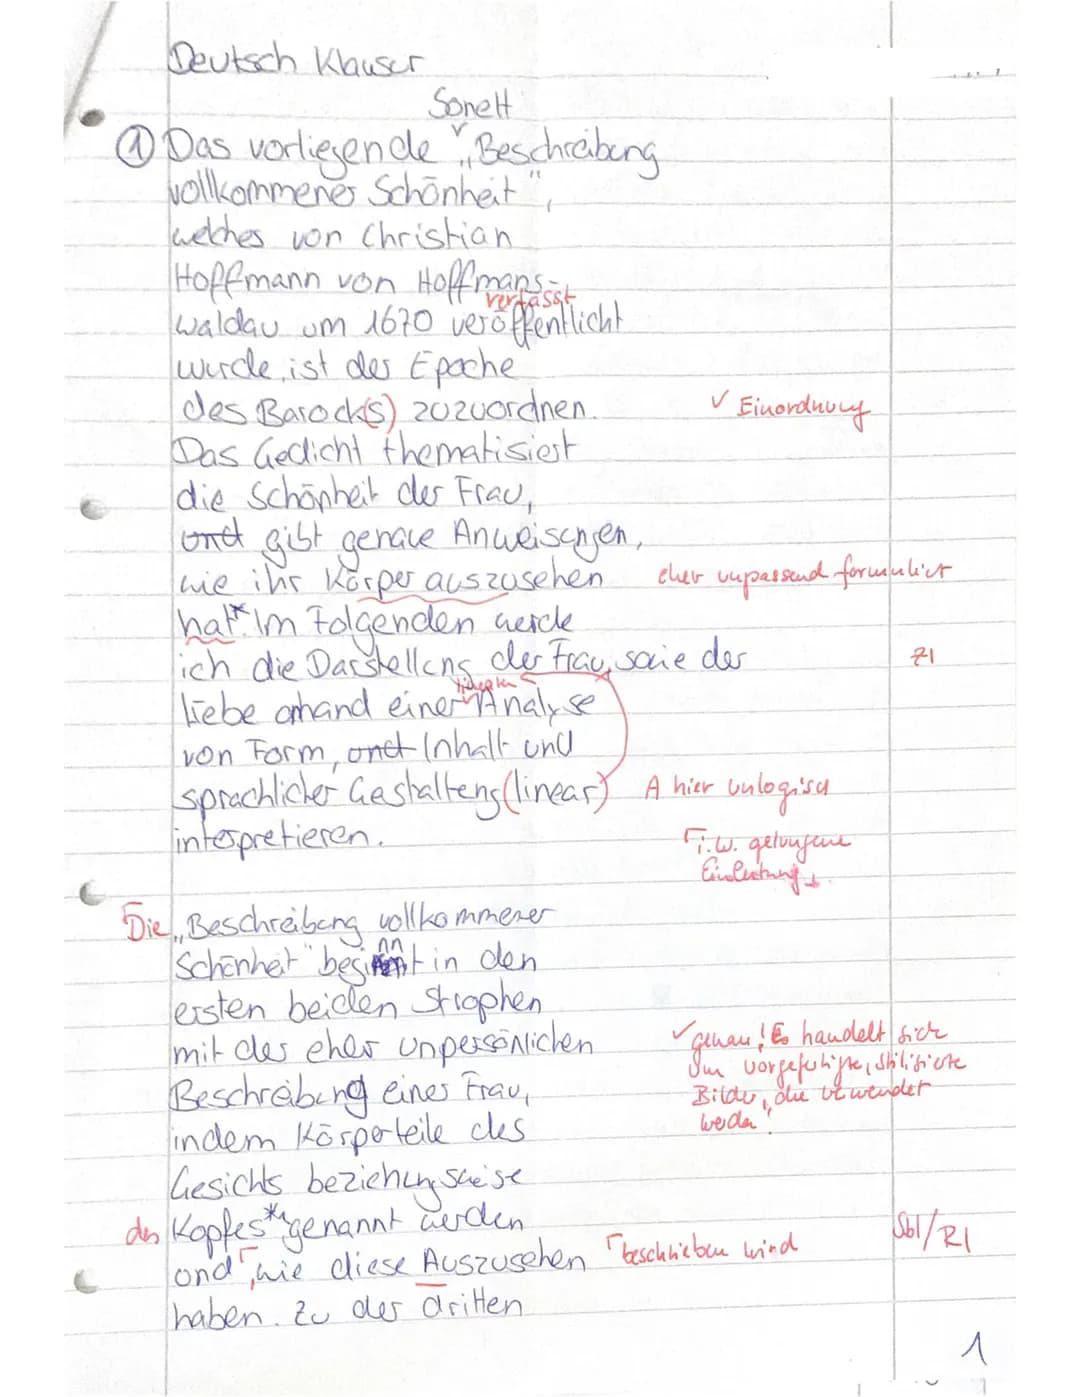 Deutsch Klausur
Sonett
① Das vorliegende „Beschreibung
vollkommener Schönheit",
welches von Christian
Hoffmann von Hoffmans-
verfasst
waldau um 1670 veröffentlicht
wurde, ist der Epoche
des Barock(s) zuzuordnen. ✓ Einordnung
Das Gedicht thematisiert
die Schönheit der Frau,
und gibt genaue Anweisungen,
wie ihr Körper auszusehen eher unpassend formuliert
hat.* Im Folgenden werde
ich die Darstellung der Frau, sowie der Z1
liebe anhand einer Analyse
von Form, und Inhalt und
sprachlicher Gestaltung (linear) A hier unlogisch
interpretieren.
i.w. gelungene
Einleitung
Die „Beschreibung vollkommener
nn
Schönheit" beginnt in den
ersten beiden Strophen
mit der eher unpersönlichen ✓ genau! Es handelt sich
um vorgefertigte, stilisierte
Beschreibung einer Frau, Bilder, die verwendet
indem Körperteile des werden!
Gesichts beziehungsweise
des Kopfes * genannt werden Sb1/R1
und, wie diese Auszusehen beschrieben wird
haben. Zu der dritten
1